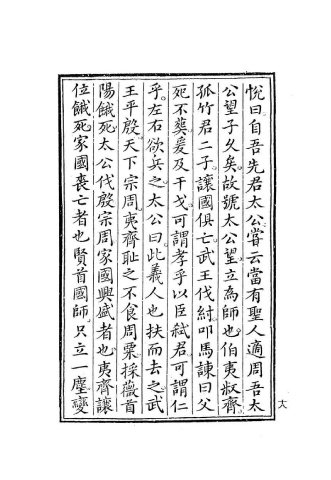 悅曰自吾先君太公嘗云當有聖人適周吾太
公望子乆矣故號太公望立為師也伯夷叔齊
孤竹君二子讓國俱亡武王伐紂叩馬諫曰父
死不葬爰及干戈可謂孝乎以臣弑君可謂仁
乎左右欲兵之太公曰此義人也扶而去之武
王平殷天下宗周夷齊恥之不食周粟採薇首
陽餓死太公伐殷宗周家國興盛者也夷齊讓
位餓死家國喪亡者也賢首國師只立一塵變
十六